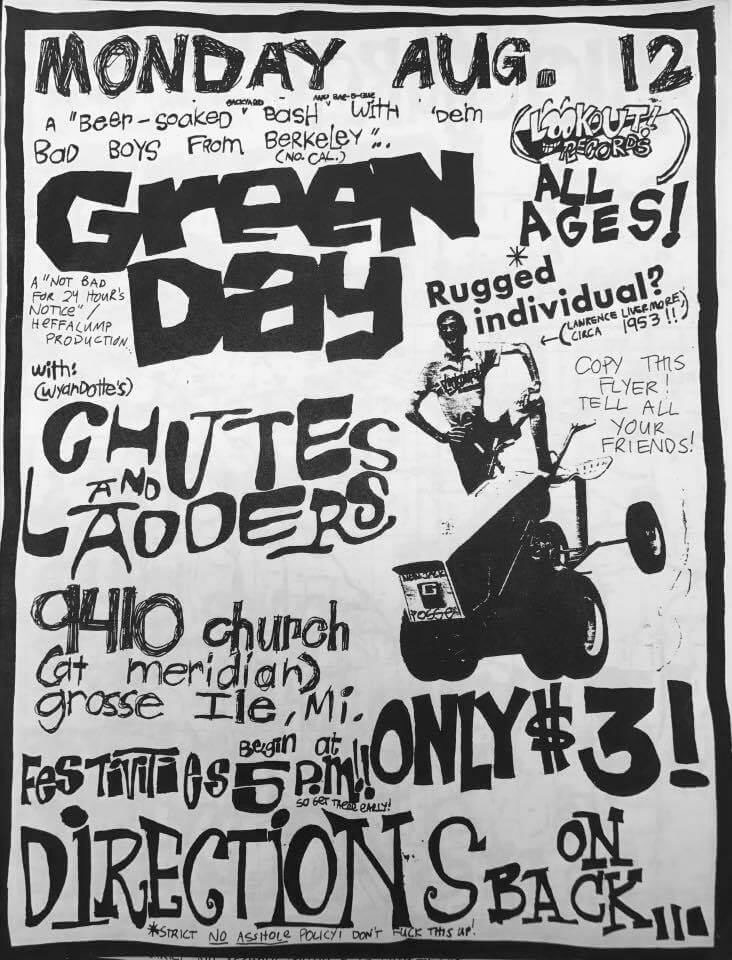 MONDAY AUG. 12
A "Beer-soaked BACKYARD BASH" AND BAR-B-QUE WITH 'DEM
BAD BOYS FROM BERKELEY"..
(NO. CAL.)
LOOKOUT!
RECORDS
ALL
AGES!
GREEN
DAY
A "NOT BAD
FOR 24 HOUR'S
NOTICE"/
HEFFALUMP
PRODUCTION
*
Rugged
individual?
←(LAWRENCE LIVERMORE,
CIRCA 1953!!)
COPY THIS
FLYER!
TELL ALL
YOUR
FRIENDS!
with:
(WYANDOTTE'S)
CHUTES
AND
LADDERS
9410 church
(at meridian)
grosse Ile, Mi.
FESTIVITIES Begin at
5 P.M!!
SO GET THERE EARLY!
ONLY $3!
DIRECTIONS ON
BACK...
*STRICT NO ASSHOLE POLICY! DON'T FUCK THIS UP!